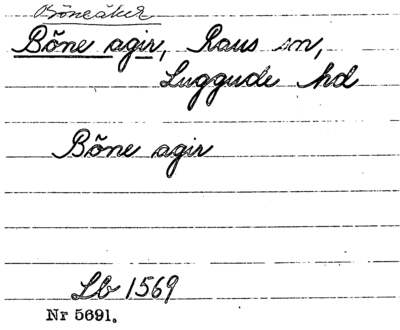 Böneåker
Bõne agir, Raus sn,
Luggude hd
Bõne agir
Lb 1569
Nr 5691.